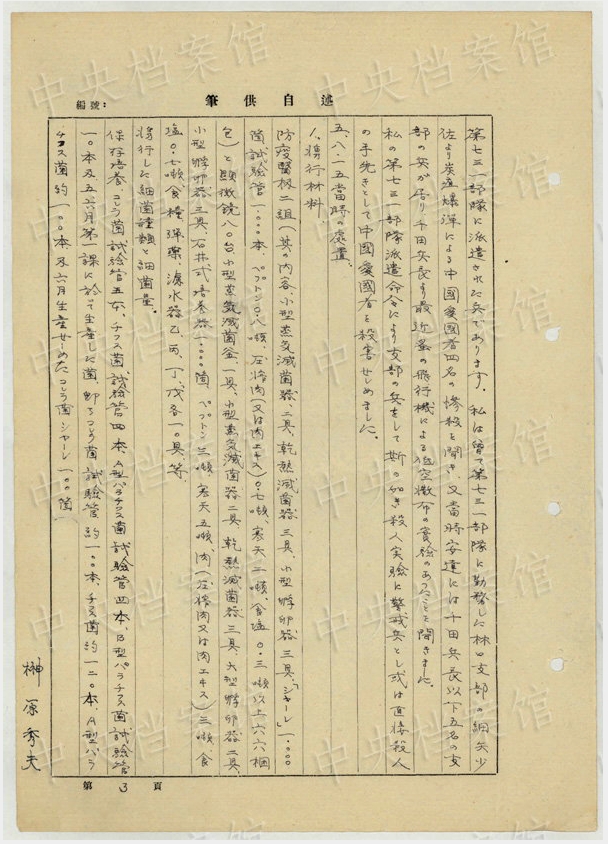 述自供筆
編號:
第七三一部隊に派遣された兵であります。私は曾て第七三一部隊に勤務した林口支部の細矢少
佐より炭疽爆弾による中國愛國者四名の惨殺を聞き、又當時安達には千田兵長以下五名の支
部の兵が居り千田兵長より最近蚤の飛行機による低空撒布の實験のあつたことを聞きました。
私の第七三一部隊派遣命令により支部の兵をして斯の如き殺人実験に警戒兵とし或は直接殺人
の手先きとして中國愛國者を殺害せしめました。
五、八・一五當時の處置、
1、携行材料、
防疫醫极二組(其の内容小型蒸気滅菌器二具、乾熱滅菌器三具、小型孵卵器三具、「シャーレ」一〇〇〇
箇試験管一〇〇〇本、ペプトン〇.八噸、圧搾肉(又は肉エキス)〇.七噸、寒天二噸、食塩〇.三噸以上六六梱
包)と顕微鏡八〇台小型蒸気滅菌釜一具、小型蒸気滅菌器二具、乾熱滅菌器三具、大型孵卵器二具、
小型孵卵器三具、石井式培養器一〇〇〇箇 ペプトン三噸、寒天五噸、肉(圧搾肉又は肉エキス)三噸、食
塩〇.七噸、食糧、弾薬、濾水器乙、丙、丁、戊各一〇具等、
携行した細菌種類と細菌量。
保存培養、コレラ菌試験管五本、チフス菌、試験管四本、A型パラチフス菌試験管四本、B型パラチフス菌試験管
一〇本及五六月第一課に於て生産した菌、即ちコレラ菌試験管約一〇〇本、チフス菌約一二〇本、A型パラ
チフス菌約一〇〇本及六月生産せしめたコレラ菌シャーレ一〇〇箇
榊原秀夫
第 3 頁
中央档案馆